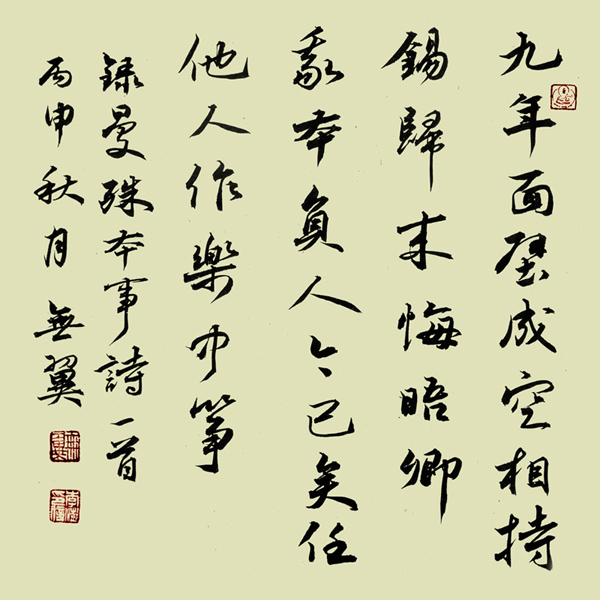 九年面壁成空相持
錫歸来悔晤卿
我本負人今已矣任
他人作樂中筝
録曼殊本事詩一首
丙申秋月無翼